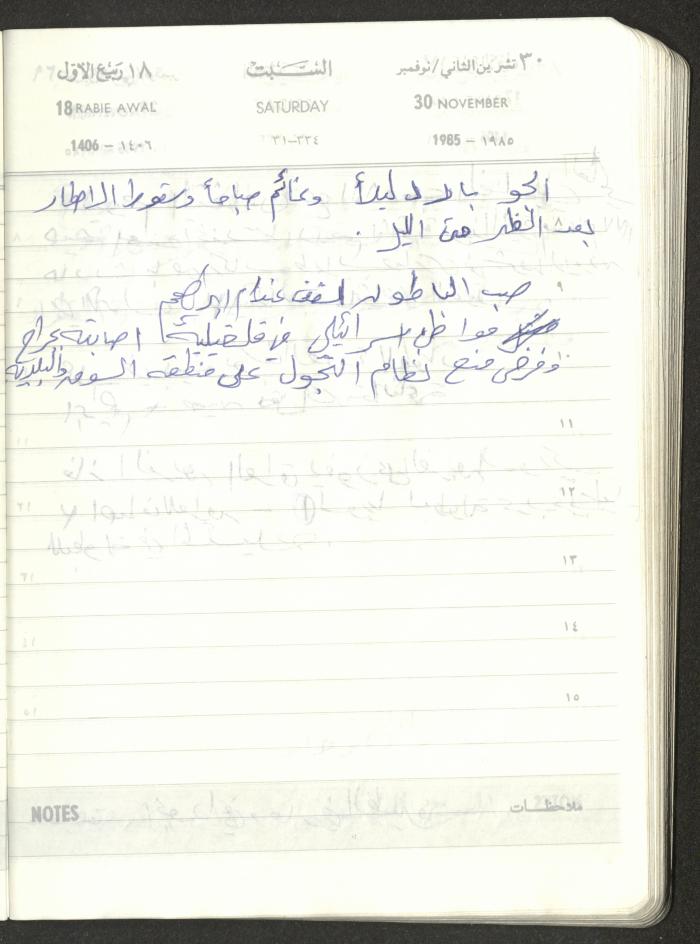 ٣٠ تشرين الثاني/نوفمبر السبت ١٨ ربيع الاول
18 RABIE AWAL SATURDAY 30 NOVEMBER
1406 - ١٤٠٦ ٣١-٣٣٤ 1985 - ١٩٨٥
الجو بارد ليلاً وغائم صباحاً وسقوط الامطار
بعد الظهر حتى الليل .
٩
صب الباطون لسقف غنام ابراهيم
مواطن اسرائيلي في قلقيلية اصابته بجراح
وفرض منع نظام التجول على منطقة السوق والبلدية
١١
١٢
١٣
١٤
١٥
NOTES ملاحظات